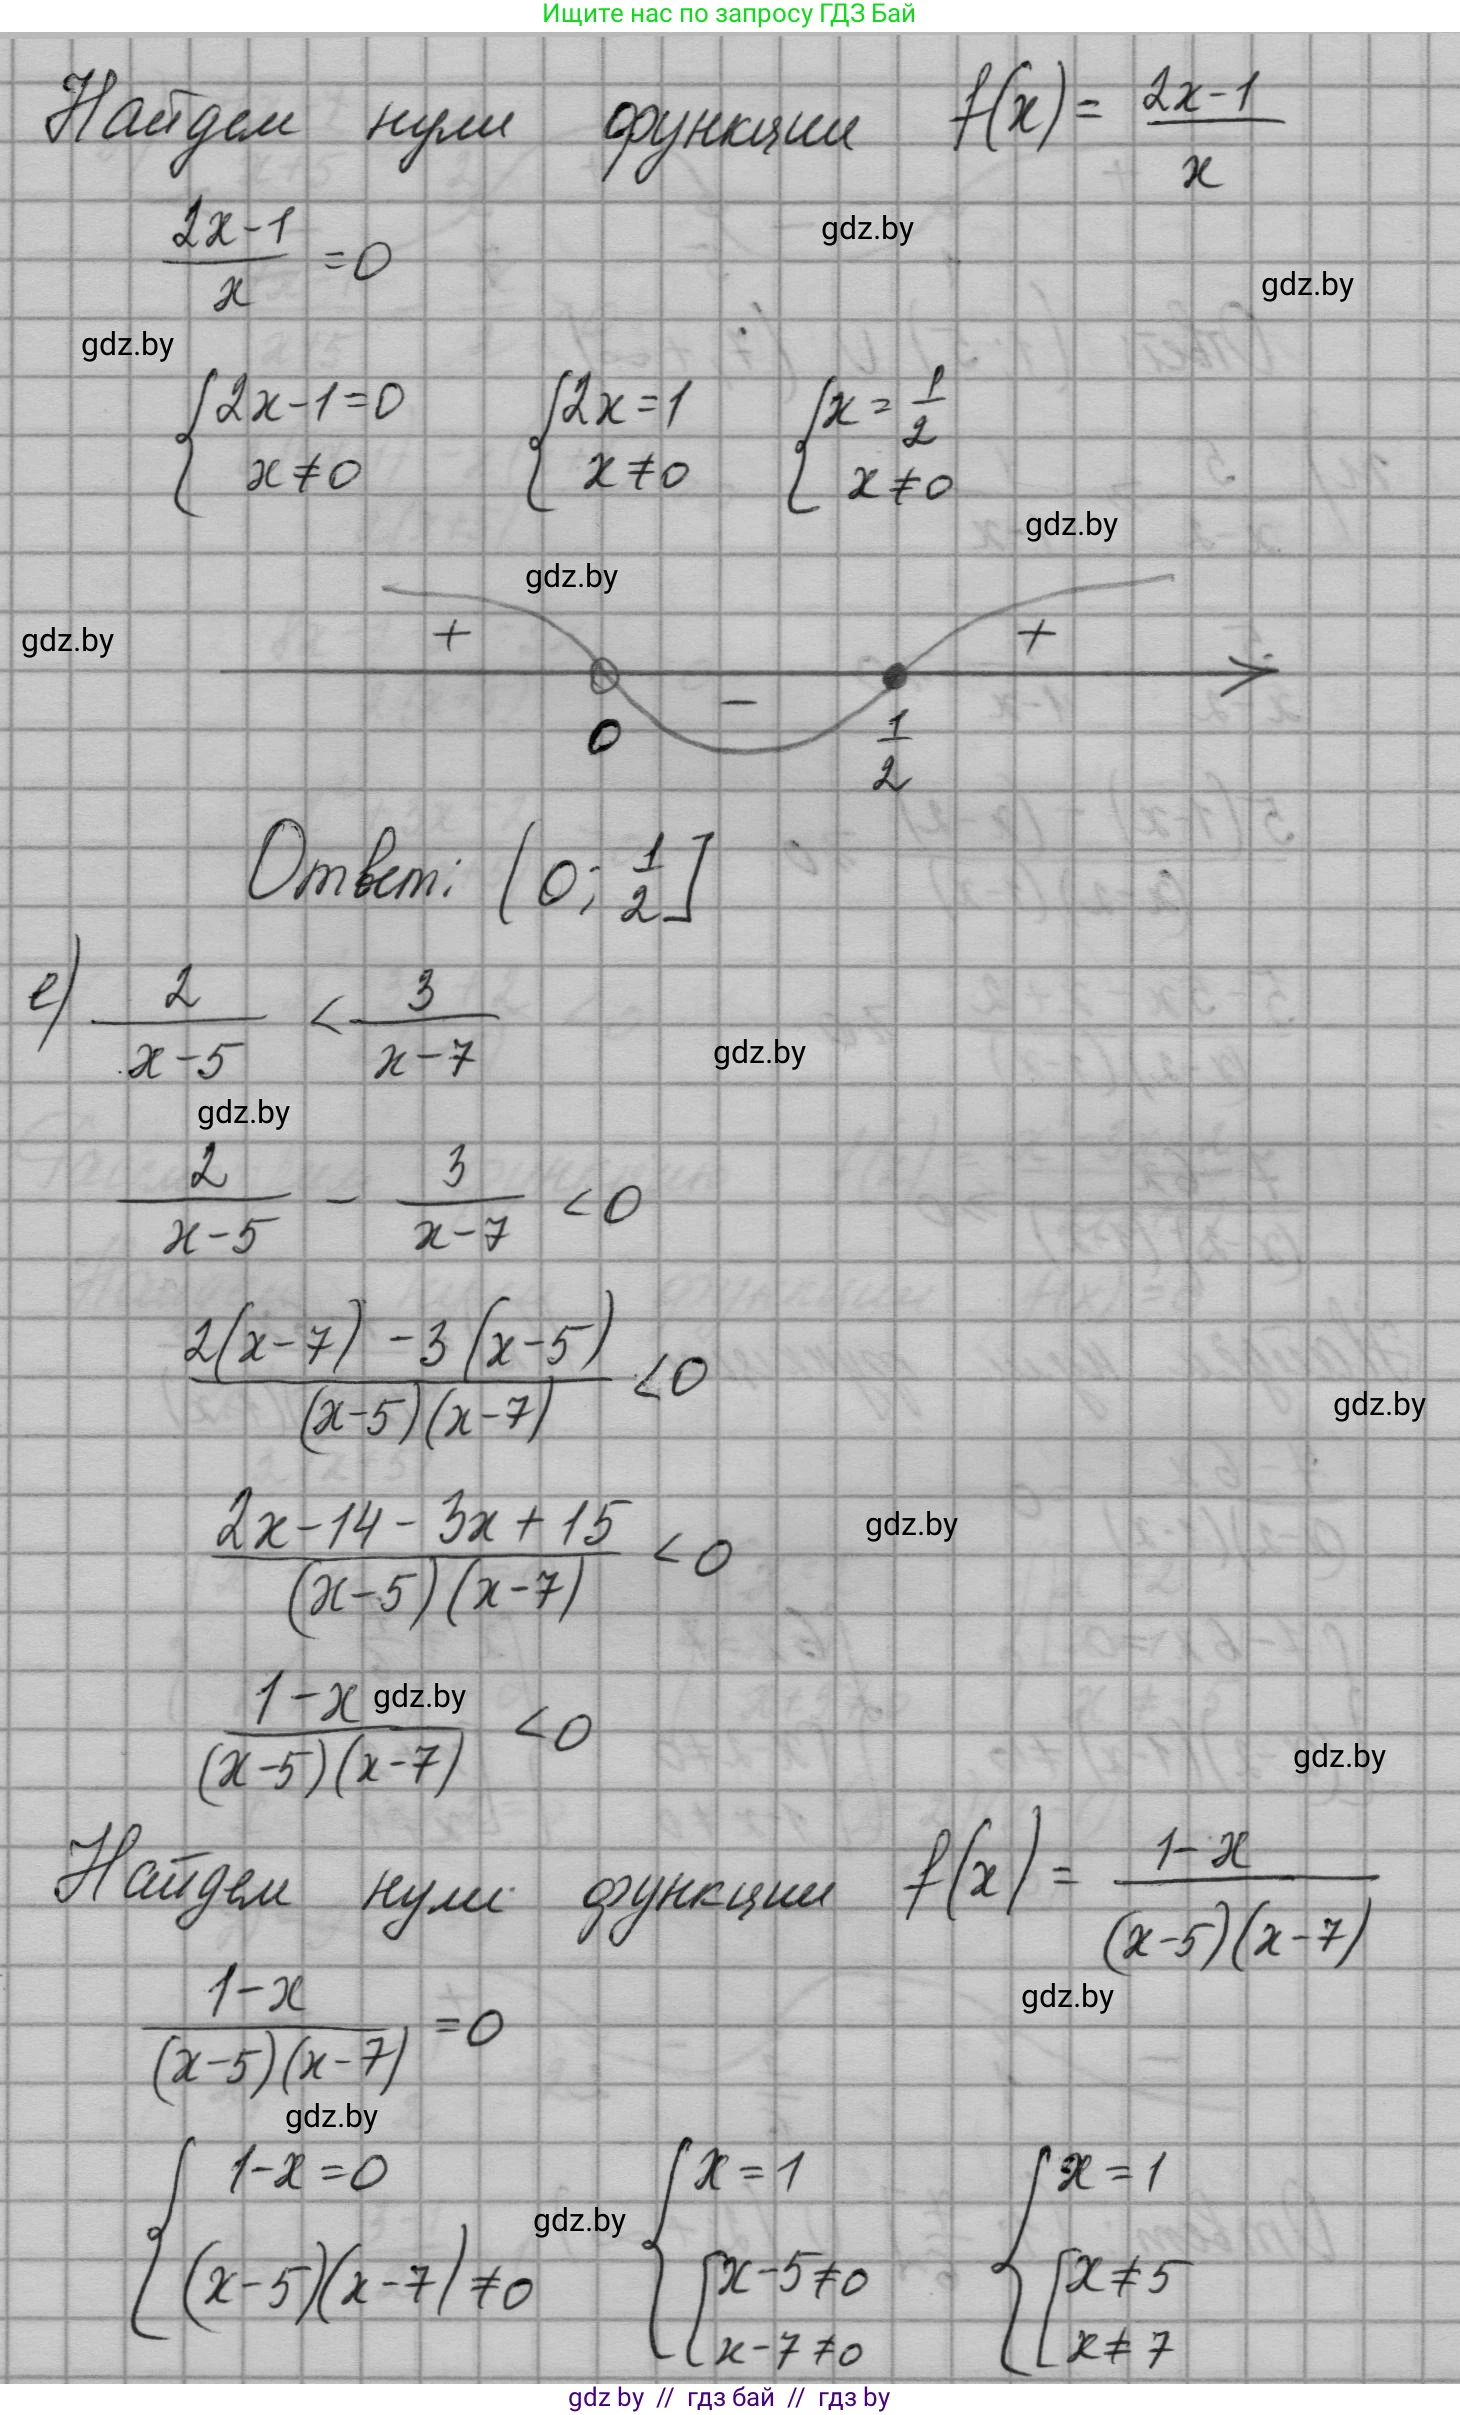 Ищите нас по запросу ГДЗ Бай
Найдем нули функции f(x) = (2x-1)/x
(2x-1)/x = 0
gdz.by
gdz.by
gdz.by
{2x-1=0 {2x=1 {x=1/2
x≠0 x≠0 x≠0
gdz.by
gdz.by
gdz.by
+ - +
0 1/2
Ответ: (0; 1/2]
е) 2/(x-5) < 3/(x-7)
gdz.by
gdz.by
2/(x-5) - 3/(x-7) <0
(2(x-7) -3(x-5))/((x-5)(x-7)) <0
gdz.by
(2x-14-3x+15)/((x-5)(x-7)) <0
gdz.by
(1-x)/((x-5)(x-7)) <0
gdz.by
gdz.by
Найдем нули функции f(x) = (1-x)/((x-5)(x-7))
(1-x)/((x-5)(x-7)) =0
gdz.by
gdz.by
{1-x=0 {x=1 {x=1
gdz.by
(x-5)(x-7)≠0 [x-5≠0 [x≠5
x-7≠0 x≠7
gdz by // гдз бай // гдз by